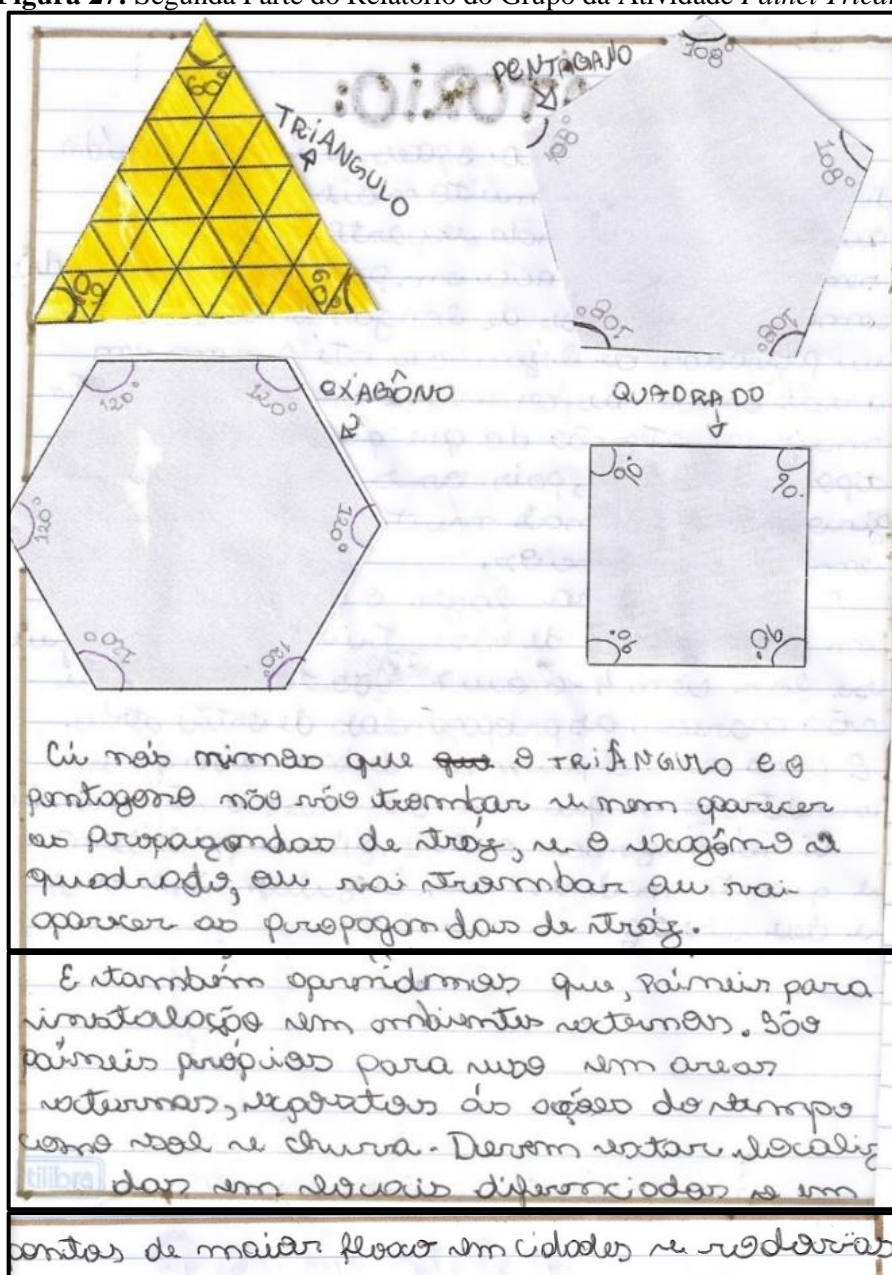 Figura 27. Segunda Parte do Relatório do Grupo da Atividade Painel
60°
TRIÂNGULO
60°
60°
PENTÁGANO
108°
108°
108°
108°
108°
EXAGÔNO
120°
120°
120°
120°
120°
120°
QUADRADO
90°
90°
90°
90°
nós que que O TRIÂNGULO E O
pentagono não vão trombar e nem aparecer
as propagandas de tráz, e o exagôno e
quadrado, ou vai trombar ou vai
aparecer as propogandas de tráz.
E também aprendemos que, Painéis para
instalação em ambientes externos. São
painéis própios para uso em areas
externas, expostos ás ações do tempo
como sol e chuva. Devem estar localiz
tilibra
das em locais diferenciados e em
pontos de maior floxo em cidades e rodovias